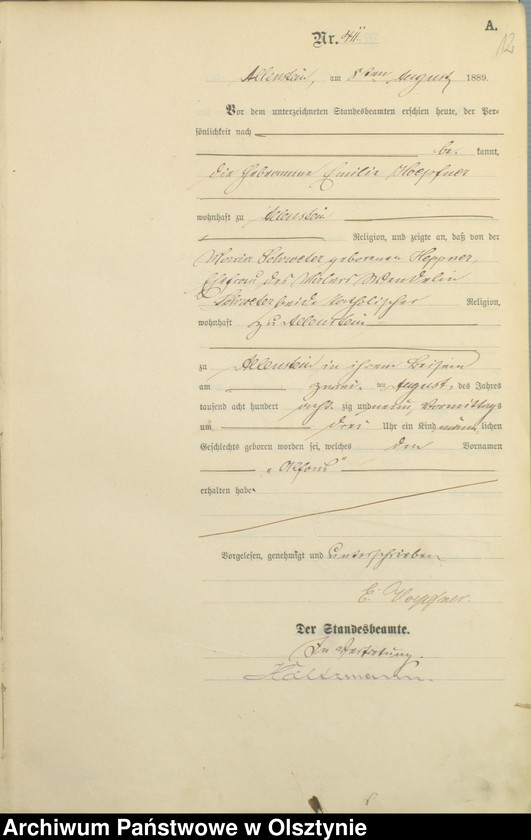 A.
12
Nr. 411.
Allenstein, am 8ten August 1889.
Vor dem unterzeichneten Standesbeamten erschien heute, der Per=
sönlichkeit nach
be kannt,
die Hebamme Emilie Hoepfner
wohnhaft zu Allenstein
Religion, und zeigte an, daß von der
Maria Schroeter geborenen Hoppner,
Ehefrau des Wendelin
Schroeter beide katholischer Religion,
wohnhaft zu Allenstein
zu Allenstein in ihrem Beisein
am zwei ten August, des Jahres
tausend acht hundert acht zig und neun, Vormittags
um drei Uhr ein Kind männ lichen
Geschlechts geboren worden sei, welches den Vornamen
„Alfons"
erhalten habe.
Vorgelesen, genehmigt und unterschrieben
E. Hoepfner.
Der Standesbeamte.
In Vertretung.
Holtzmann.
Archiwum Państwowe w Olsztynie